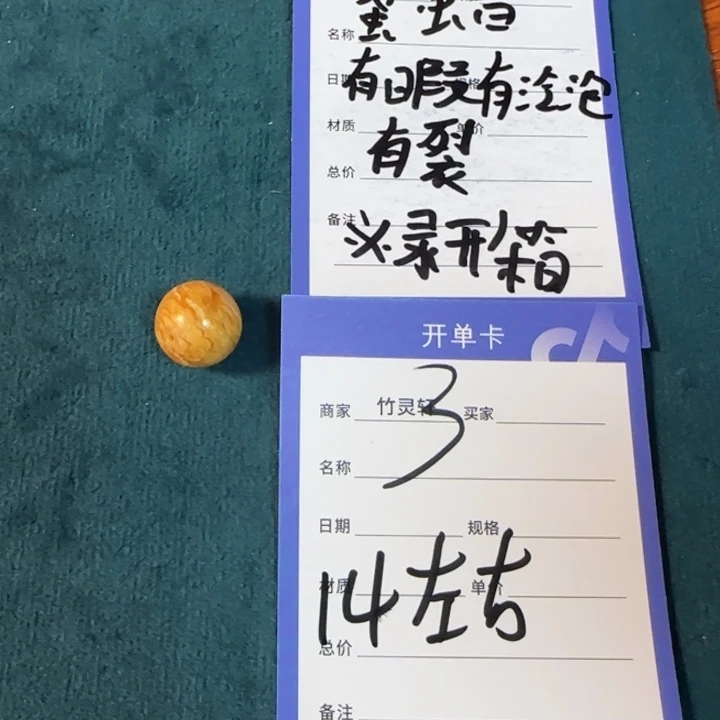 蜜虫白
名称
有日暇有泣泡
日期 规格
有裂
材质 单价
总价
必录开箱
备注
开单卡
商家 竹灵轩 买家
3
名称
日期 规格
14左右
材质 单价
总价
备注